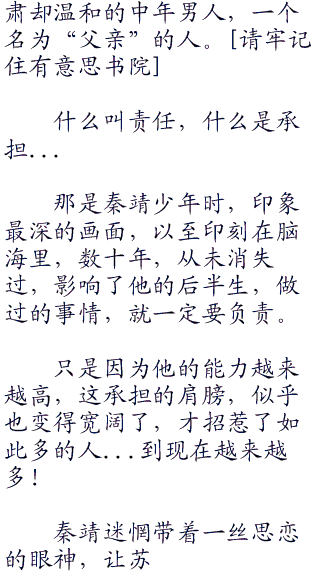 肃却温和的中年男人，一个
名为“父亲”的人。[请牢记
住有意思书院]
什么叫责任，什么是承
担...
那是秦靖少年时，印象
最深的画面，以至印刻在脑
海里，数十年，从未消失
过，影响了他的后半生，做
过的事情，就一定要负责。
只是因为他的能力越来
越高，这承担的肩膀，似乎
也变得宽阔了，才招惹了如
此多的人...到现在越来越
多！
秦靖迷惘带着一丝思恋
的眼神，让苏